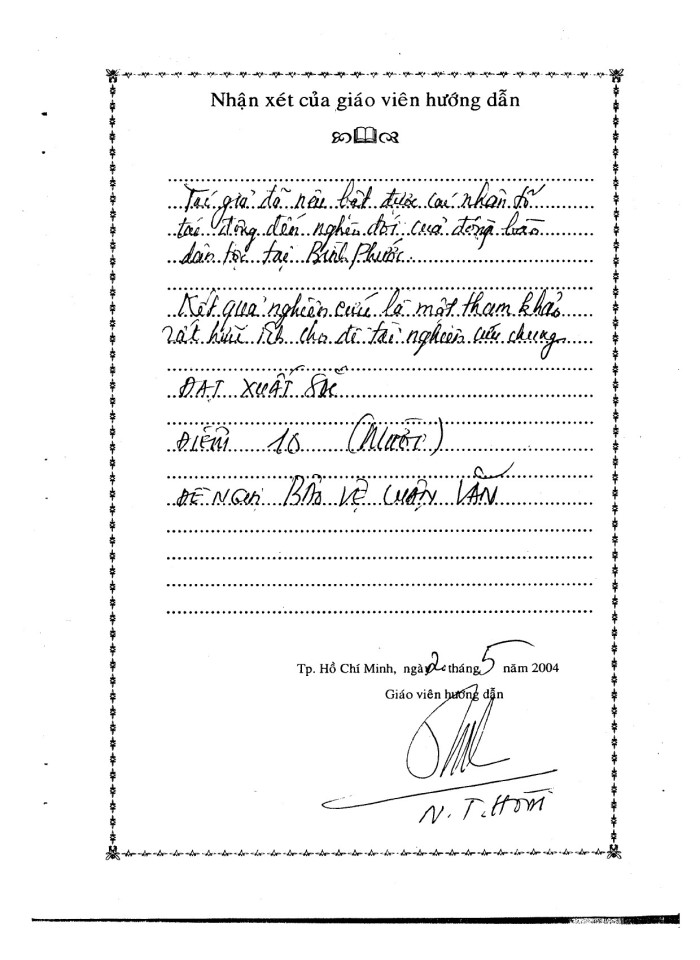 Nhận xét của giáo viên hướng dẫn
Tác giả đã nêu bật được các nhân tố
tác động đến nghèo đói của đồng bào
dân tộc tại Bình Phước.
Kết quả nghiên cứu là một tham khảo
rất hữu ích cho đề tài nghiên cứu chung
ĐẠT XUẤT SẮC
ĐIỂM 10 (MƯỜI)
ĐỀ NGHỊ BẢO VỆ LUẬN VĂN
Tp. Hồ Chí Minh, ngày 2 tháng 5 năm 2004
Giáo viên hướng dẫn
N. T.